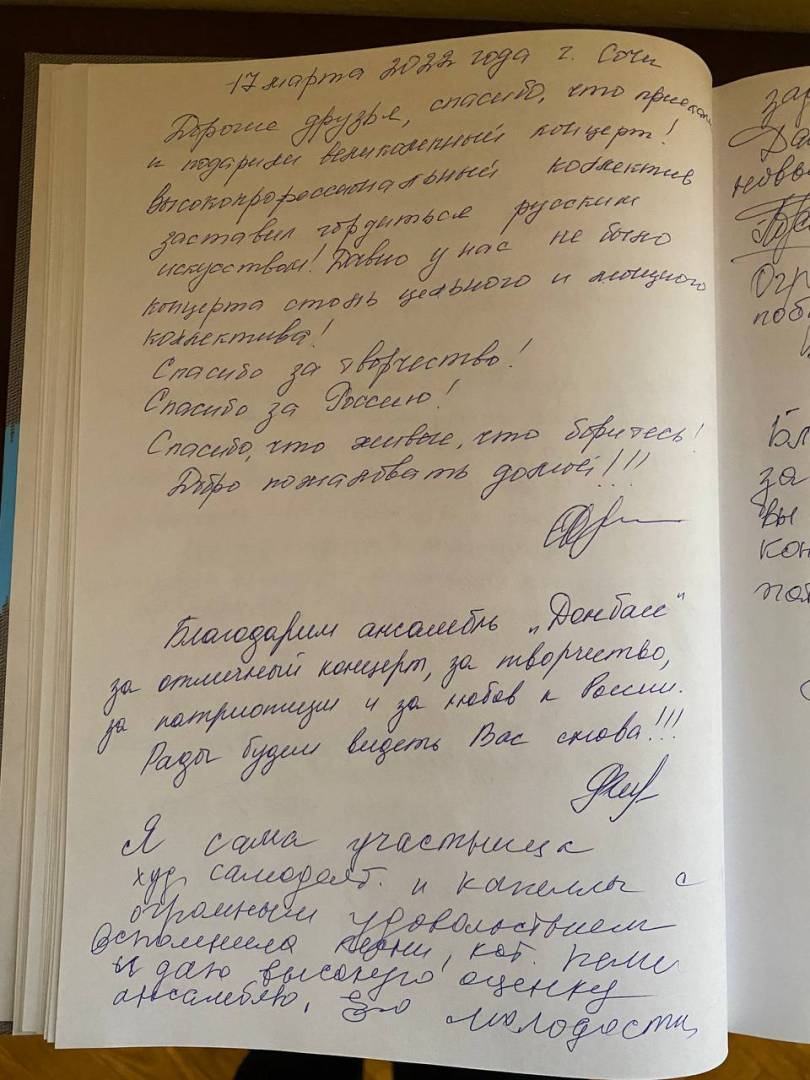 17 марта 2022 года г. Сочи
Дорогие друзья, спасибо, что приехали
и подарили великолепный концерт!
Высокопрофессиональный коллектив
заставил гордиться русским
искусством! Давно у нас не было
концерта столь цельного и мощного
коллектива!
Спасибо за творчество!
Спасибо за Россию!
Спасибо, что живые, что боритесь!
Добро пожаловать домой!!!
Благодарим ансамбль „Донбасс"
за отличный концерт, за творчество,
за патриотизм и за любов к России.
Рады будем видеть Вас снова!!!
Я сама участница
худ. самодеят. и капеллы с
огромным удовольствием
вспомнила песни, кот. пели
и даю высокую оценку
ансамблю, его молодости
зар
Да
новы
Огр
поб
Бл
за
вы
кон